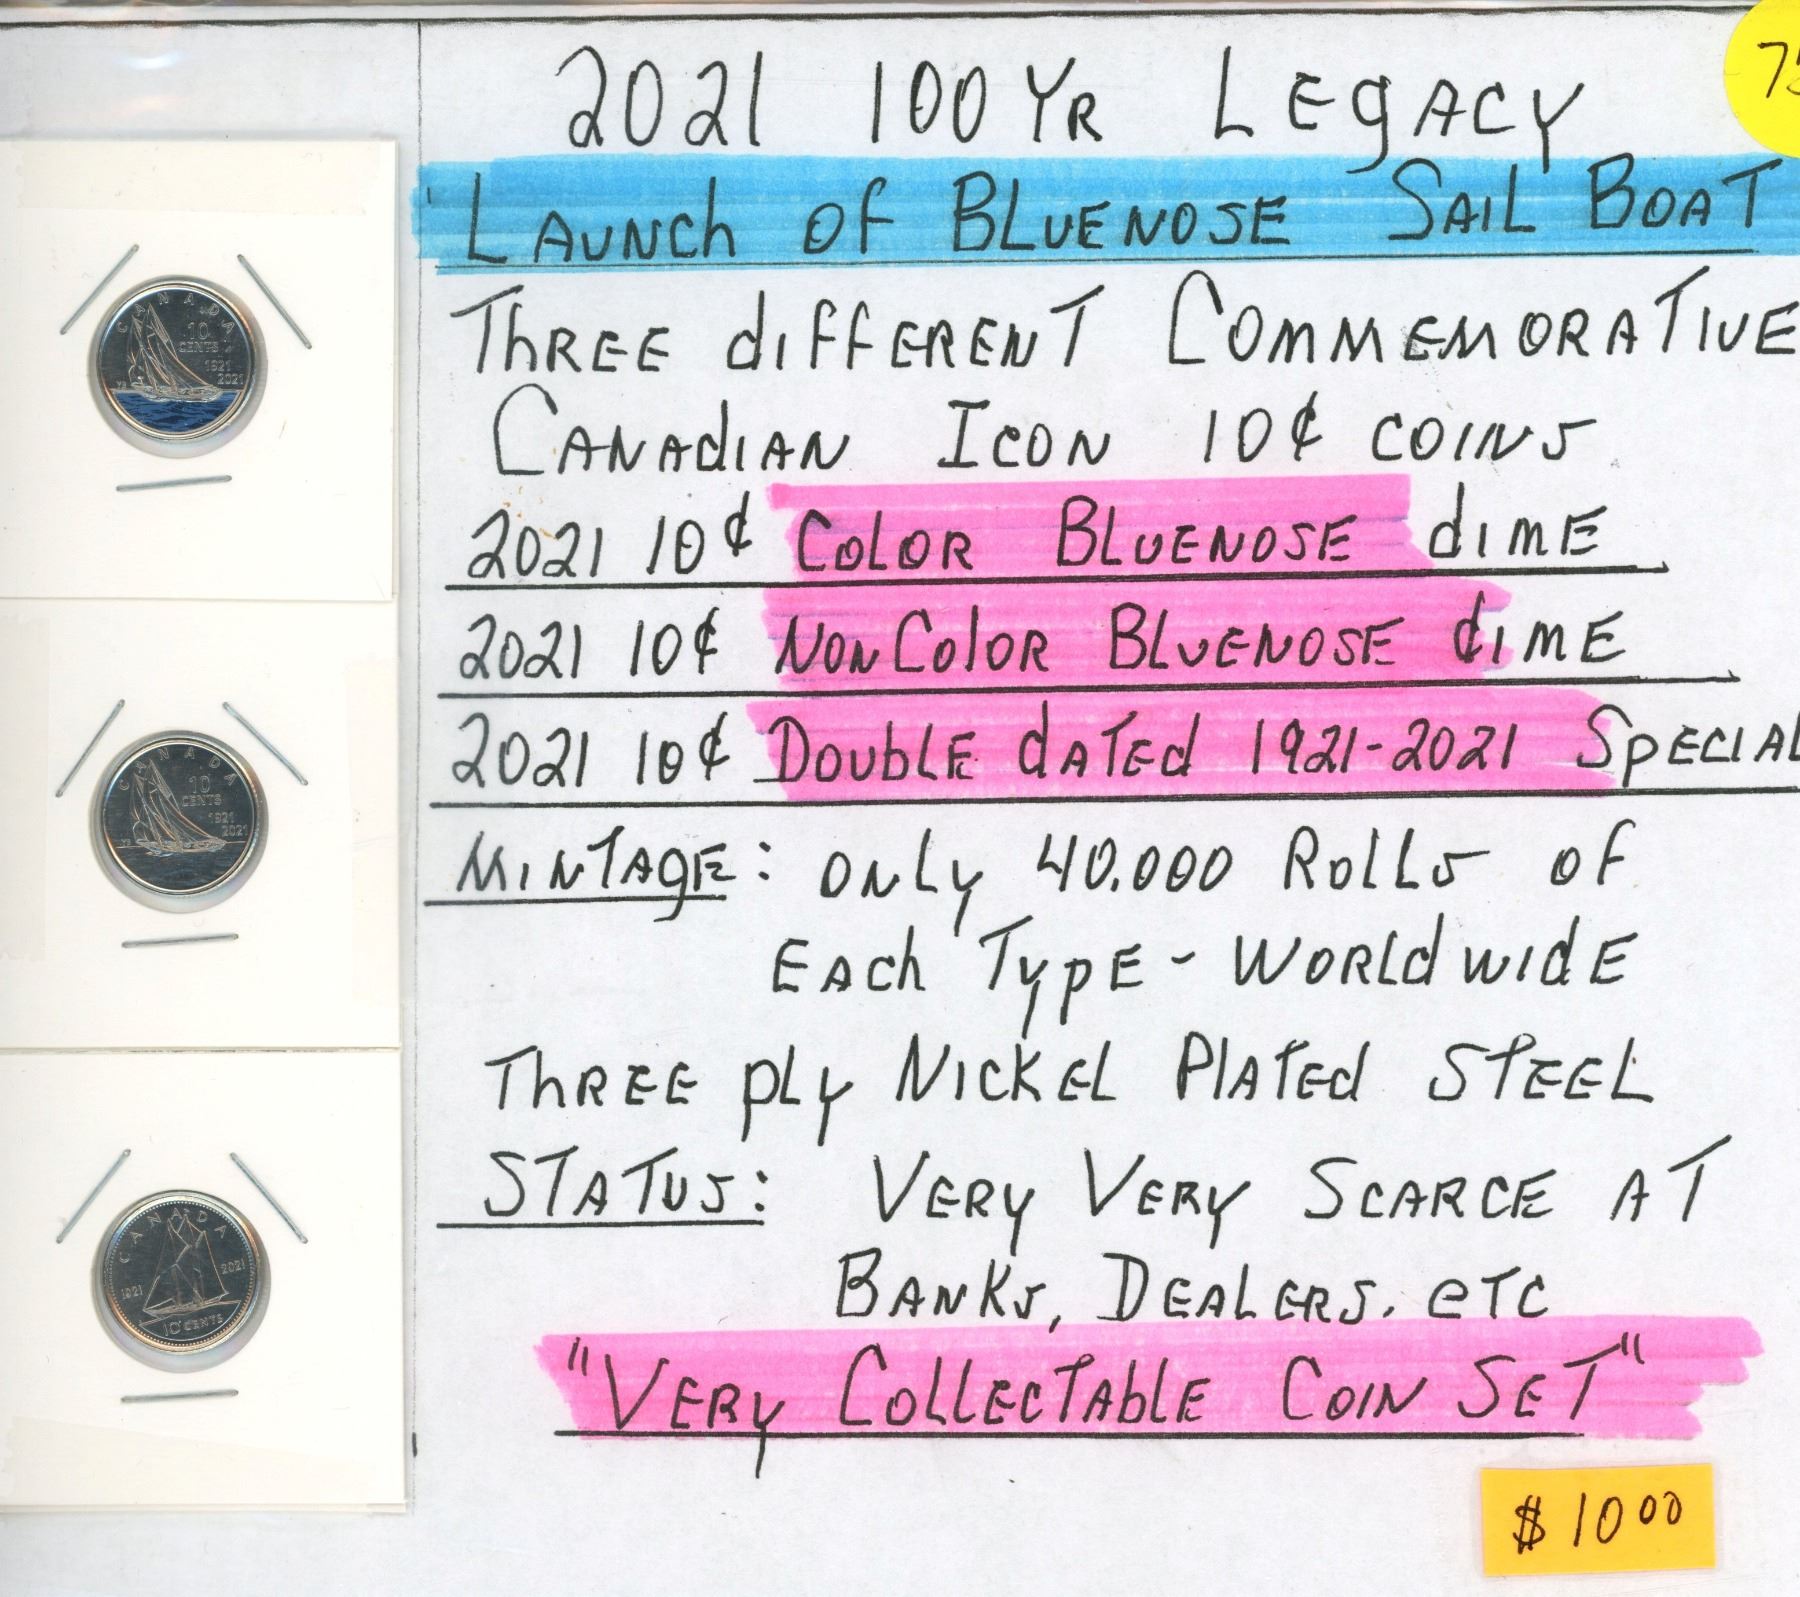 2021 100 YR LEGACY
LAUNCH OF BLUENOSE SAIL BOAT
THREE dIFFERENT COMMEMORATIVE
CANAdIAN ICON 10¢ COINS
2021 10¢ COLOR BLUENOSE dIME
2021 10¢ NON COLOR BLUENOSE dIME
2021 10¢ DOUBLE dATEd 1921-2021 SPECIAL
MINTAGE: ONLY 40.000 ROLLS OF
EACH TYPE - WORLDWIDE
THREE PLY NICKEL PLATED STEEL
STATUS: VERY VERY SCARCE AT
BANKS, DEALERS. eTC
"VERY COLLECTABLE COIN SET"
$10 00
CANADA
10
CENTS
1921
2021
CANADA
10
CENTS
1921
2021
CANADA
1921
2021
10 CENTS